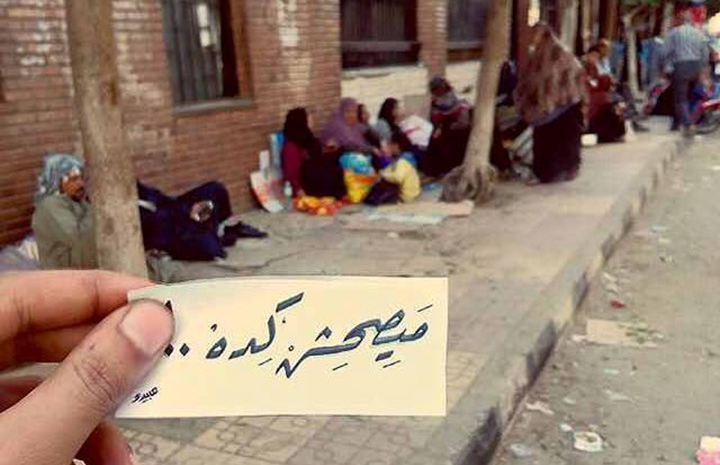 مَيِصحِش كِده ..!
عبيدو